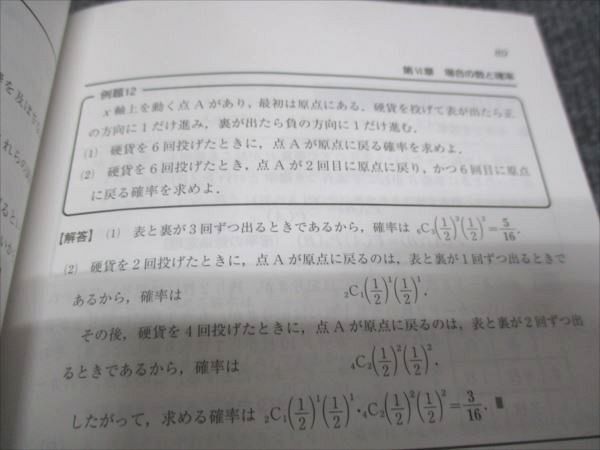 89
第Ⅵ章 場合の数と確率
例題12
x軸上を動く点Aがあり，最初は原点にある．硬貨を投げて表が出たら正
の方向に1だけ進み，裏が出たら負の方向に1だけ進む．
(1) 硬貨を6回投げたときに，点Aが原点に戻る確率を求めよ．
(2) 硬貨を6回投げたとき，点Aが2回目に原点に戻り，かつ6回目に原点
に戻る確率を求めよ．
【解答】 (1) 表と裏が3回ずつ出るときであるから，確率は ₆C₃(1/2)³(1/2)³=5/16.
(2) 硬貨を2回投げたときに，点Aが原点に戻るのは，表と裏が1回ずつ出るときで
あるから，確率は ₂C₁(1/2)¹(1/2)¹.
その後，硬貨を4回投げたときに，点Aが原点に戻るのは，表と裏が2回ずつ出
るときであるから，確率は ₄C₂(1/2)²(1/2)².
したがって，求める確率は ₂C₁(1/2)¹(1/2)¹・₄C₂(1/2)²(1/2)²=3/16.